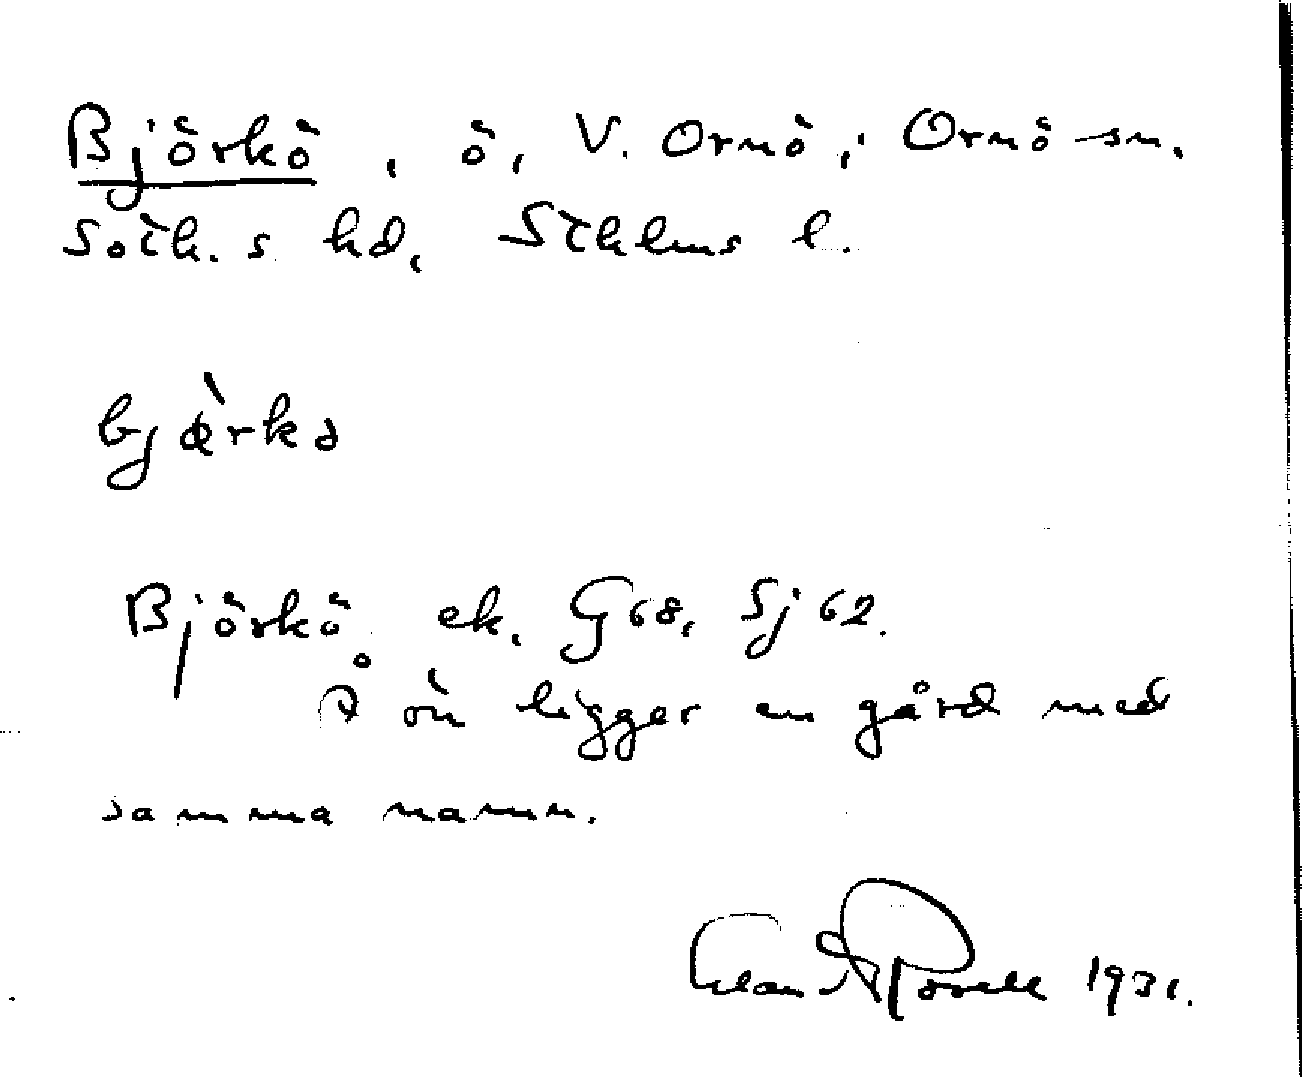 Björkö, ö, V. Ornö, Ornö sn.
Soth.s hd, Sthlms l.
bjæ̀rkə
Björkö ek. G 68, Sj 62.
På ön ligger en gård med
samma namn.
1931.